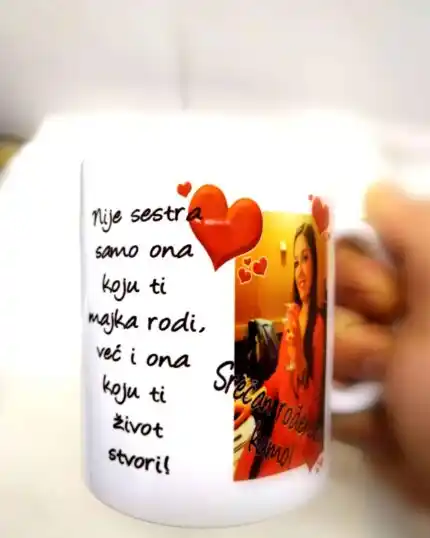 Nije sestra
samo ona
koju ti
majka rodi,
već i ona
koju ti
život
stvori!
Srećan